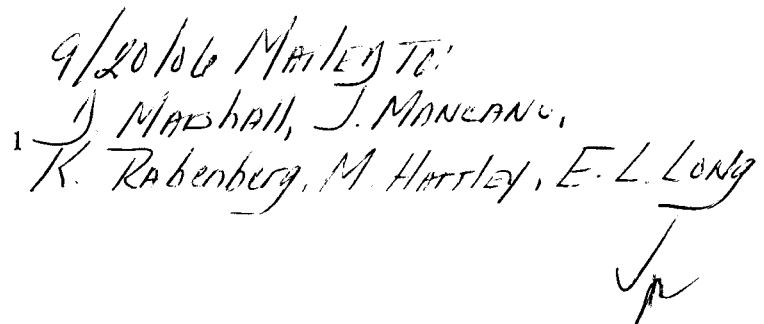 9/20/06 Mailed To:
D. Marshall, J. Mancano,
1
K. Rabenberg, M. Hartley, E. L. Long